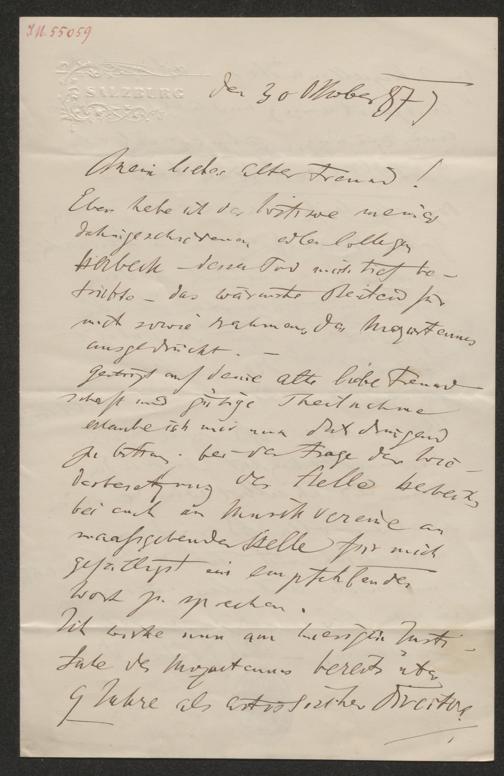 I.N. 55059
SALZBURG
den 30 Oktober 877
Mein lieber alter Freund!
Eben habe ich der Wittwe meines
dahingeschiedenen edlen Collegen
Herbeck – dessen Tod mich tief be-
trübte – das wärmste Beileid für
mich sowie namens des Mozarteums
ausgedrückt. –
Gestützt auf deine alte liebe Freund
schaft und gütige Theilnahme
erlaube ich mir nun dich dringend
zu bitten bei der Frage der Wie-
derbesetzung der Stelle Herbecks
bei euch im Musikvereine an
maaßgebender Stelle für mich
gefälligst ein empfehlendes
Wort zu sprechen.
Ich wirke nun am hiesigen Insti-
tute des Mozarteums bereits über
9 Jahre als artistischer Director